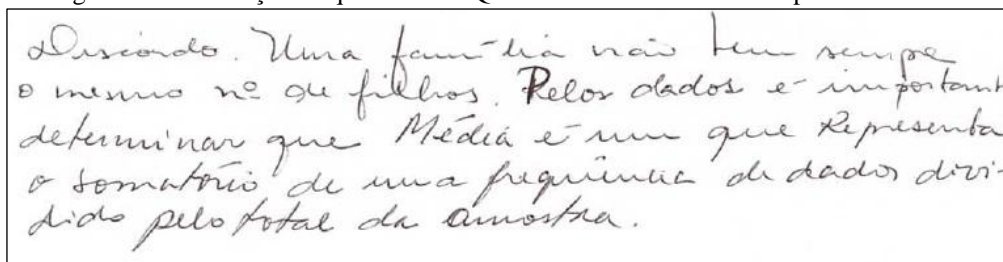 Discordo. Uma família não tem sempre
o mesmo nº de filhos. Pelos dados é important
determinar que Média é um que Representa
o somatório de uma freqüência de dados divi-
dido pelo total da amostra.